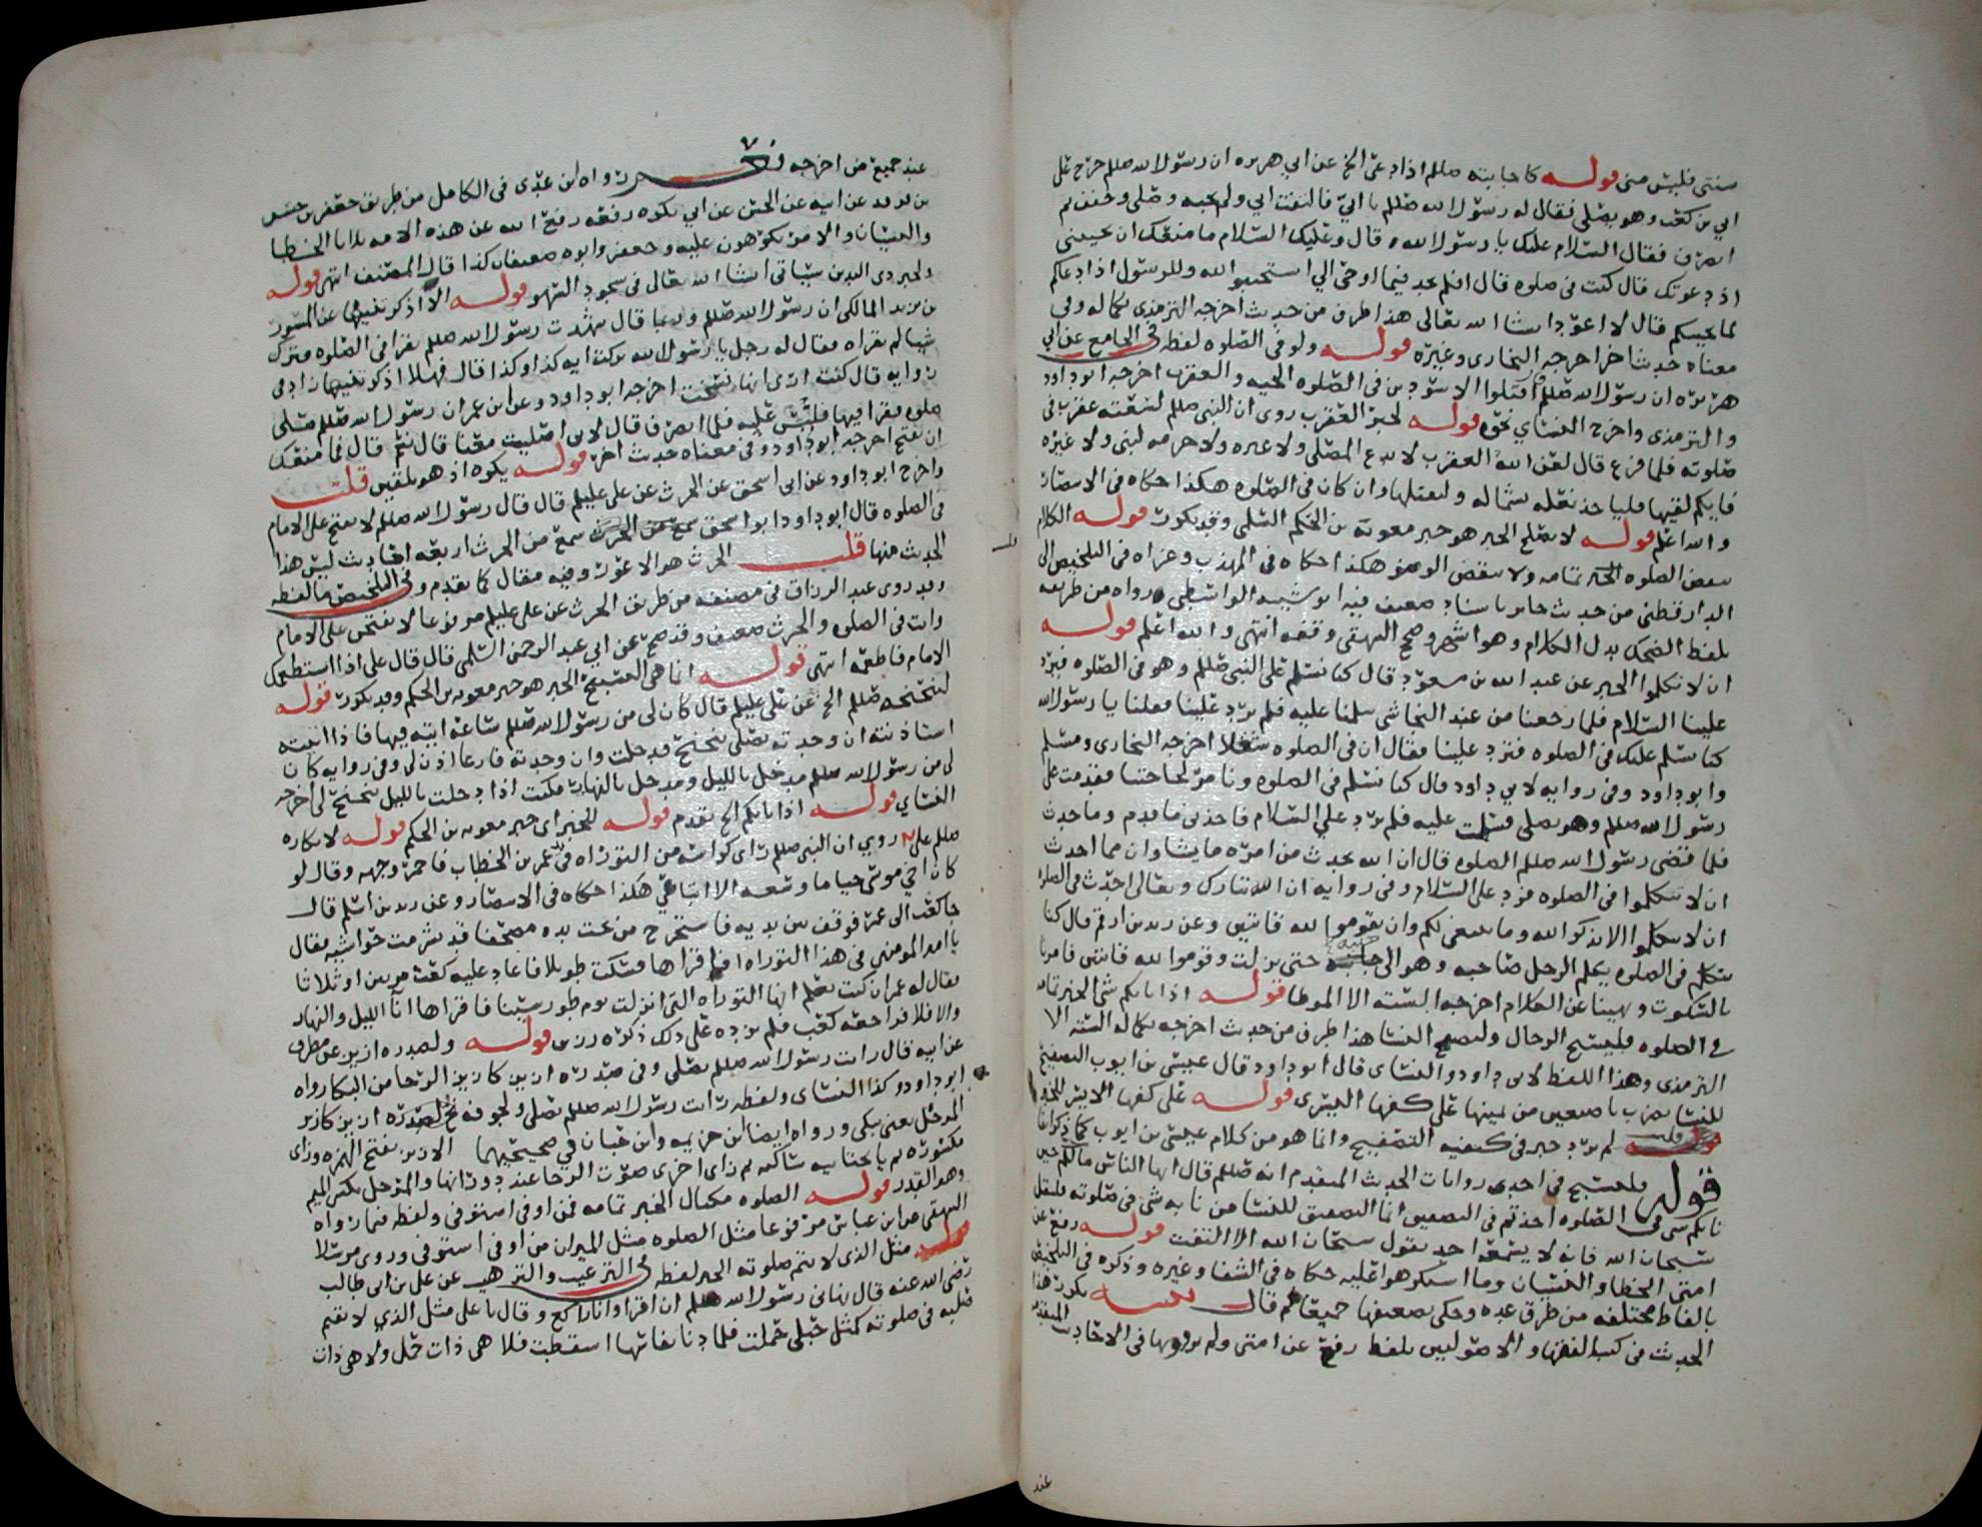 سنتى فليس منى قوله كاجابته صللم اذا دعى الخ عن ابي هريره ان رسول الله صللم خرج على
ابي بن كعب وهو يصلى فقال له رسول الله صللم يا ابيّ فالتفت ابي ولم يجبه وصلى وخفف ثم
انصرف فقال السلام عليك يا رسول الله قال وعليك السلام ما منعك ان تجيبنى
اذ دعوتك قال كنت فى صلوه قال افلم تجد فيما اوحى الي استجيبوا لله وللرسول اذا دعاكم
لما يحييكم قال لا اعود ان شا الله تعالى هذا طرف من حديث اخرجه الترمذى بكماله وفى
معناه حديث اخر اخرجه البخارى وغيره قوله ولو فى الصلوه لفظه فى الجامع عن ابي
هريره ان رسول الله صللم اقتلوا الاسودين فى الصلوه الحيه والعقرب اخرجه ابو داود
والترمذى واخرج النساي نحوه قوله لخبر العقرب روى ان النبى صللم لسعته عقرب فى
صلوته فلما فرغ قال لعن الله العقرب لا تدع المصلى ولا غيره ولا حرمه لنبى ولا غيره
فايكم لقيها فلياخذ نعله بشماله وليقتلها وان كان فى الصلوه هكذا حكاه فى الانتصار
والله اعلم قوله لا يصلح الخبر هو خبر معويه بن الحكم السلمى وقد تكرر قوله الكلام
ينقض الصلوه الخبر تمامه ولا ينقض الوضو هكذا حكاه فى المهذب وعزاه فى التلخيص الى
الدارقطنى من حديث جابر باسناد ضعيف فيه ابو شيبه الواسطى ورواه من طريقه
بلفظ الضحك بدل الكلام وهو اشهر وصحح البيهقى وقفه انتهى والله اعلم قوله
ان لا تكلموا الخبر عن عبد الله بن مسعود قال كنا نسلم على النبى صللم وهو فى الصلوه فيرد
علينا السلام فلما رجعنا من عند النجاشى سلمنا عليه فلم يرد علينا فقلنا يا رسول الله
كنا نسلم عليك فى الصلوه فترد علينا فقال ان فى الصلوه شغلا اخرجه البخارى ومسلم
وابو داود وفى روايه لابي داود قال كنا نسلم فى الصلوه ونامر لحاجتنا فقدمت على
رسول الله صللم وهو يصلى فسلمت عليه فلم يرد علي السلام فاخذنى ما قدم وما حدث
فلما قضى رسول الله صللم الصلوه قال ان الله يحدث من امره ما يشا وان مما احدث
ان لا تتكلموا فى الصلوه فرد على السلام وفى روايه ان الله تبارك وتعالى احدث فى الصلوه
ان لا تتكلموا الا بذكر الله وما ينبغى لكم وان تقوموا لله قانتين وعن زيد بن ارقم قال كنا
نتكلم فى الصلوه يكلم الرجل صاحبه وهو الى جنبه حتى نزلت وقوموا لله قانتين فامرنا
بالسكوت ونهينا عن الكلام اخرجه الستة الا الموطا قوله اذا نابكم شى الخبر تمامه
فى الصلوه فليسبح الرجال وليصفح النسا هذا طرف من حديث اخرجه بكماله الستة الا
الترمذى وهذا اللفظ لابي داود والنساى قال ابو داود قال عيسى بن ايوب التصفيح
للنسا تضرب باصبعين من يمينها على كفها اليسرى قوله على كفها الايسر للخبر
لم يرد خبر فى كيفيه التصفيح وانما هو من كلام عيسى بن ايوب كما ذكرنا
قوله فليسبح فى احدى روايات الحديث المتقدم انه صللم قال ايها الناس ما لكم حين
نابكم شى فى الصلوه اخذتم فى التصفيق انما التصفيق للنسا من نابه شى فى صلوته فليقل
سبحان الله فانه لا يسمعه احد يقول سبحان الله الا التفت قوله رفع عن
امتى الخطا والنسيان وما استكرهوا عليه حكاه فى الشفا وغيره وذكره فى التلخيص
بالفاظ مختلفه من طرق عده وحكى تضعيفها جميعا ثم قال تنبيه تكرر هذا
الحديث فى كتب الفقها والاصوليين بلفظ رفع عن امتى ولم نروها فى الاحاديث المتقدمه
عند
عند جميع من اخرجه نعم رواه ابن عدى فى الكامل من طريق جعفر بن جسر
بن فرقد عن ابيه عن الحسن عن ابي بكره رفعه رفع الله عن هذه الامه ثلاثا الخطا
والنسيان والامر يكرهون عليه وجعفر وابوه ضعيفان كذا قال المصنف انتهى قوله
ولخبر ذى اليدين سياتى انشا الله تعالى فى سجود السهو قوله الا اذكرتنيها عن المسور
بن يزيد المالكى ان رسول الله صللم وربما قال شهدت رسول الله صللم يقرا فى الصلوه فترك
شيا لم يقراه فقال له رجل يا رسول الله تركت ايه كذا وكذا قال فهلا اذكرتنيها زاد فى
روايه قال كنت ارى انها نسخت اخرجه ابو داود وعن ابن عمر ان رسول الله صللم صلى
صلوه فقرا فيها فلُبس عليه فلما انصرف قال لابي اصليت معنا قال نعم قال فما منعك
ان تفتح اخرجه ابو داود وفى معناه حديث اخر قوله يكره اذ هو تلقين قلت
واخرج ابو داود عن ابى اسحق عن الحرث عن على عليلم قال قال رسول الله صللم لا تفتح على الامام
فى الصلوه قال ابو داود ابو اسحق سمع من الحرث اربعه احاديث ليس هذا
الحديث منها قلت الحرث هو الاعور وفيه مقال كما تقدم وفى التلخيص ما لفظه
وقد روى عبد الرزاق فى مصنفه من طريق الحرث عن على عليلم مرفوعا لا تفتحن على الامام
وانت فى الصلوه والحرث ضعيف وقد صح عن ابي عبد الرحمن السلمى قال قال على اذا استطعمك
الامام فاطعمه انتهى قوله انما هى التسبيح الخبر هو خبر معويه بن الحكم وقد تكرر قوله
لتنحنحه صللم الخ عن على عليلم قال كان لى من رسول الله صللم ساعة اتيه فيها فاذا اتيته
استاذنته ان وجدته يصلى تنحنح فدخلت وان وجدته فارغا اذن لى وفى روايه كان
لى من رسول الله صللم مدخل بالليل ومدخل بالنهار فكنت اذا دخلت بالليل تنحنح لى اخرجه
النساي قوله اذا نابكم الخ تقدم قوله للخبر اى خبر معويه بن الحكم قوله لانكاره
صللم على روي ان النبى صللم راى كراسه من التوراه فى يد عمر بن الخطاب فاحمر وجهه وقال لو
كان اخي موسى حيا ما وسعه الا اتباعي هكذا حكاه فى الانتصار وعن زيد بن اسلم قال
جا كعب الى عمر فوقف بين يديه فاستخرج من تحت يده مصحفا قد تشرمت حواشيه فقال
يا امير المومنين فى هذا التوراه افاقراها فسكت طويلا فاعاد عليه كعب مرتين او ثلاثا
فقال له عمر ان كنت تعلم انها التوراه التى انزلت يوم طور سينا فاقراها انا الليل والنهار
والا فلا فراجعه كعب فلم يزده على ذلك ذكره رزين قوله ولصدره ازيز عن مطرف
عن ابيه قال رايت رسول الله صللم يصلى وفى صدره ازيز كازيز الرحا من البكا رواه
ابو داود وكذا النساى ولفظه رايت رسول الله صللم يصلى ولجوفه ازيز كازيز
المرجل يعنى يبكى ورواه ايضا ابن خزيمه وابن حبان في صحيحيهما الازيز بفتح الهمزه وزاى
مكسوره ثم يا تحتانيه ساكنه ثم زاى اخرى صوت الرحا عند دورانها والمرجل بكسر الميم
وهو القدر قوله الصلوه مكيال الخبر تمامه فمن اوفى استوفى ولفظه فيما رواه
البيهقى عن ابن عباس مرفوعا مثل الصلوه مثل الميزان من اوفى استوفى وروى مرسلا
قوله مثل الذى لا يتم صلوته الخبر لفظه فى الترغيب والترهيب عن على بن ابى طالب
رضى الله عنه قال نهانى رسول الله صللم ان اقرا وانا راكع وقال يا على مثل الذي لا يقيم
صلبه فى صلوته كمثل حبلى حملت فلما دنا نفاسها اسقطت فلا هى ذات حمل ولا هى ذات